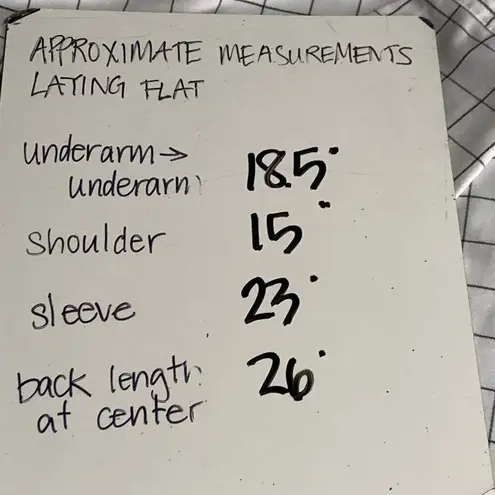 APPROXIMATE MEASUREMENTS
LAYING FLAT
underarm →
underarm 18.5"
shoulder 15"
sleeve 23"
back length
at center 26"